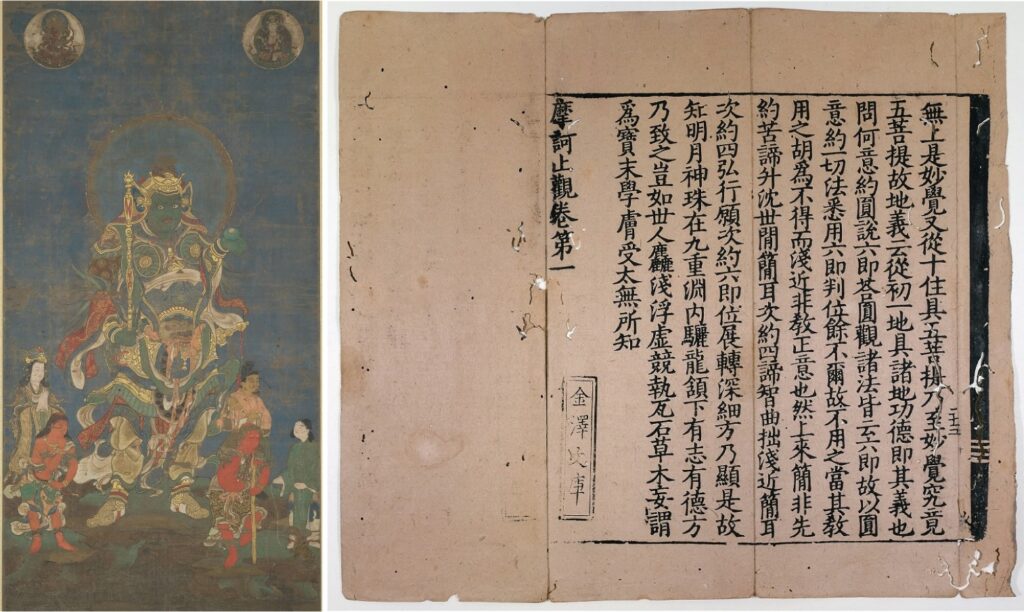 無上是妙覺又從十住具五菩提乃至妙覺究竟
五菩提故地義云從初一地具諸地功德即其義也
問何意約圓說六即荅圓觀諸法皆云六即故以圓
意約一切法悉用六即判位餘不爾故不用之當其教
用之胡爲不得而淺近非教正意也然上來簡非先
約苦諦升沈世閒簡耳次約四諦智曲拙淺近簡耳
次約四弘行願次約六即位展轉深細方乃顯是故
知明月神珠在九重淵内驪龍頷下有志有德方
乃致之豈如世人麤淺浮虛競執瓦石草木妄謂
爲寶末學膚受太無所知
摩訶止觀卷第一
金澤文庫